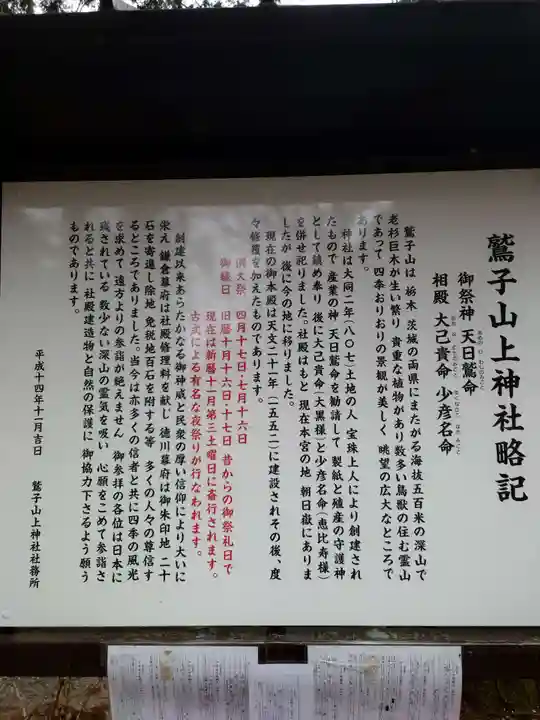 鷲子山上神社略記
御祭神 天日鷲命
相殿 大己貴命 少彦名命
鷲子山は 栃木、茨城の両県にまたがる海抜五百米の深山で
老杉巨木が生い繁り 貴重な植物があり数多い鳥獣の住む霊山
であって 四季おりおりの景観が美しく 眺望の広大なところで
あります。
神社は大同二年(八〇七)土地の人 宝珠上人により創建され
たもので 産業の神 天日鷲命を勧請して 製紙と殖産の守護神
として鎮め奉り 後に大己貴命(大黒様)と少彦名命(恵比寿様)
を併せ祀りました。社殿はもと 現在本宮の地 朝日嶽にありま
したが 後に今の地に移りました。
現在の御本殿は天文二十一年(一五五二)に建設されその後、度
々修覆を加えたものであります。
例大祭 四月十七日・七月十六日
御縁日 旧暦十月十六日・十七日 昔からの御祭礼日で
現在は新暦十一月第三土曜日に斎行されます。
古式による有名な夜祭りが行なわれます。
創建以来あらたかなる御神威と民衆の厚い信仰により大いに
栄え 鎌倉幕府は社殿修理料を献じ 徳川幕府は御朱印地 二十
石を寄進し除地 免税地百石を附する等 多くの人々の尊信す
るところでありました。当今は亦多くの信者と共に四季の風光
を求めて 遠方よりの参詣が絶えません 御参拝の各位は日本に
残されている 数少ない深山の霊気を吸い 心願をこめて参詣さ
れると共に 社殿建造物と自然の保護に 御協力下さるよう願う
ものであります。
平成十四年十一月吉日
鷲子山上神社社務所